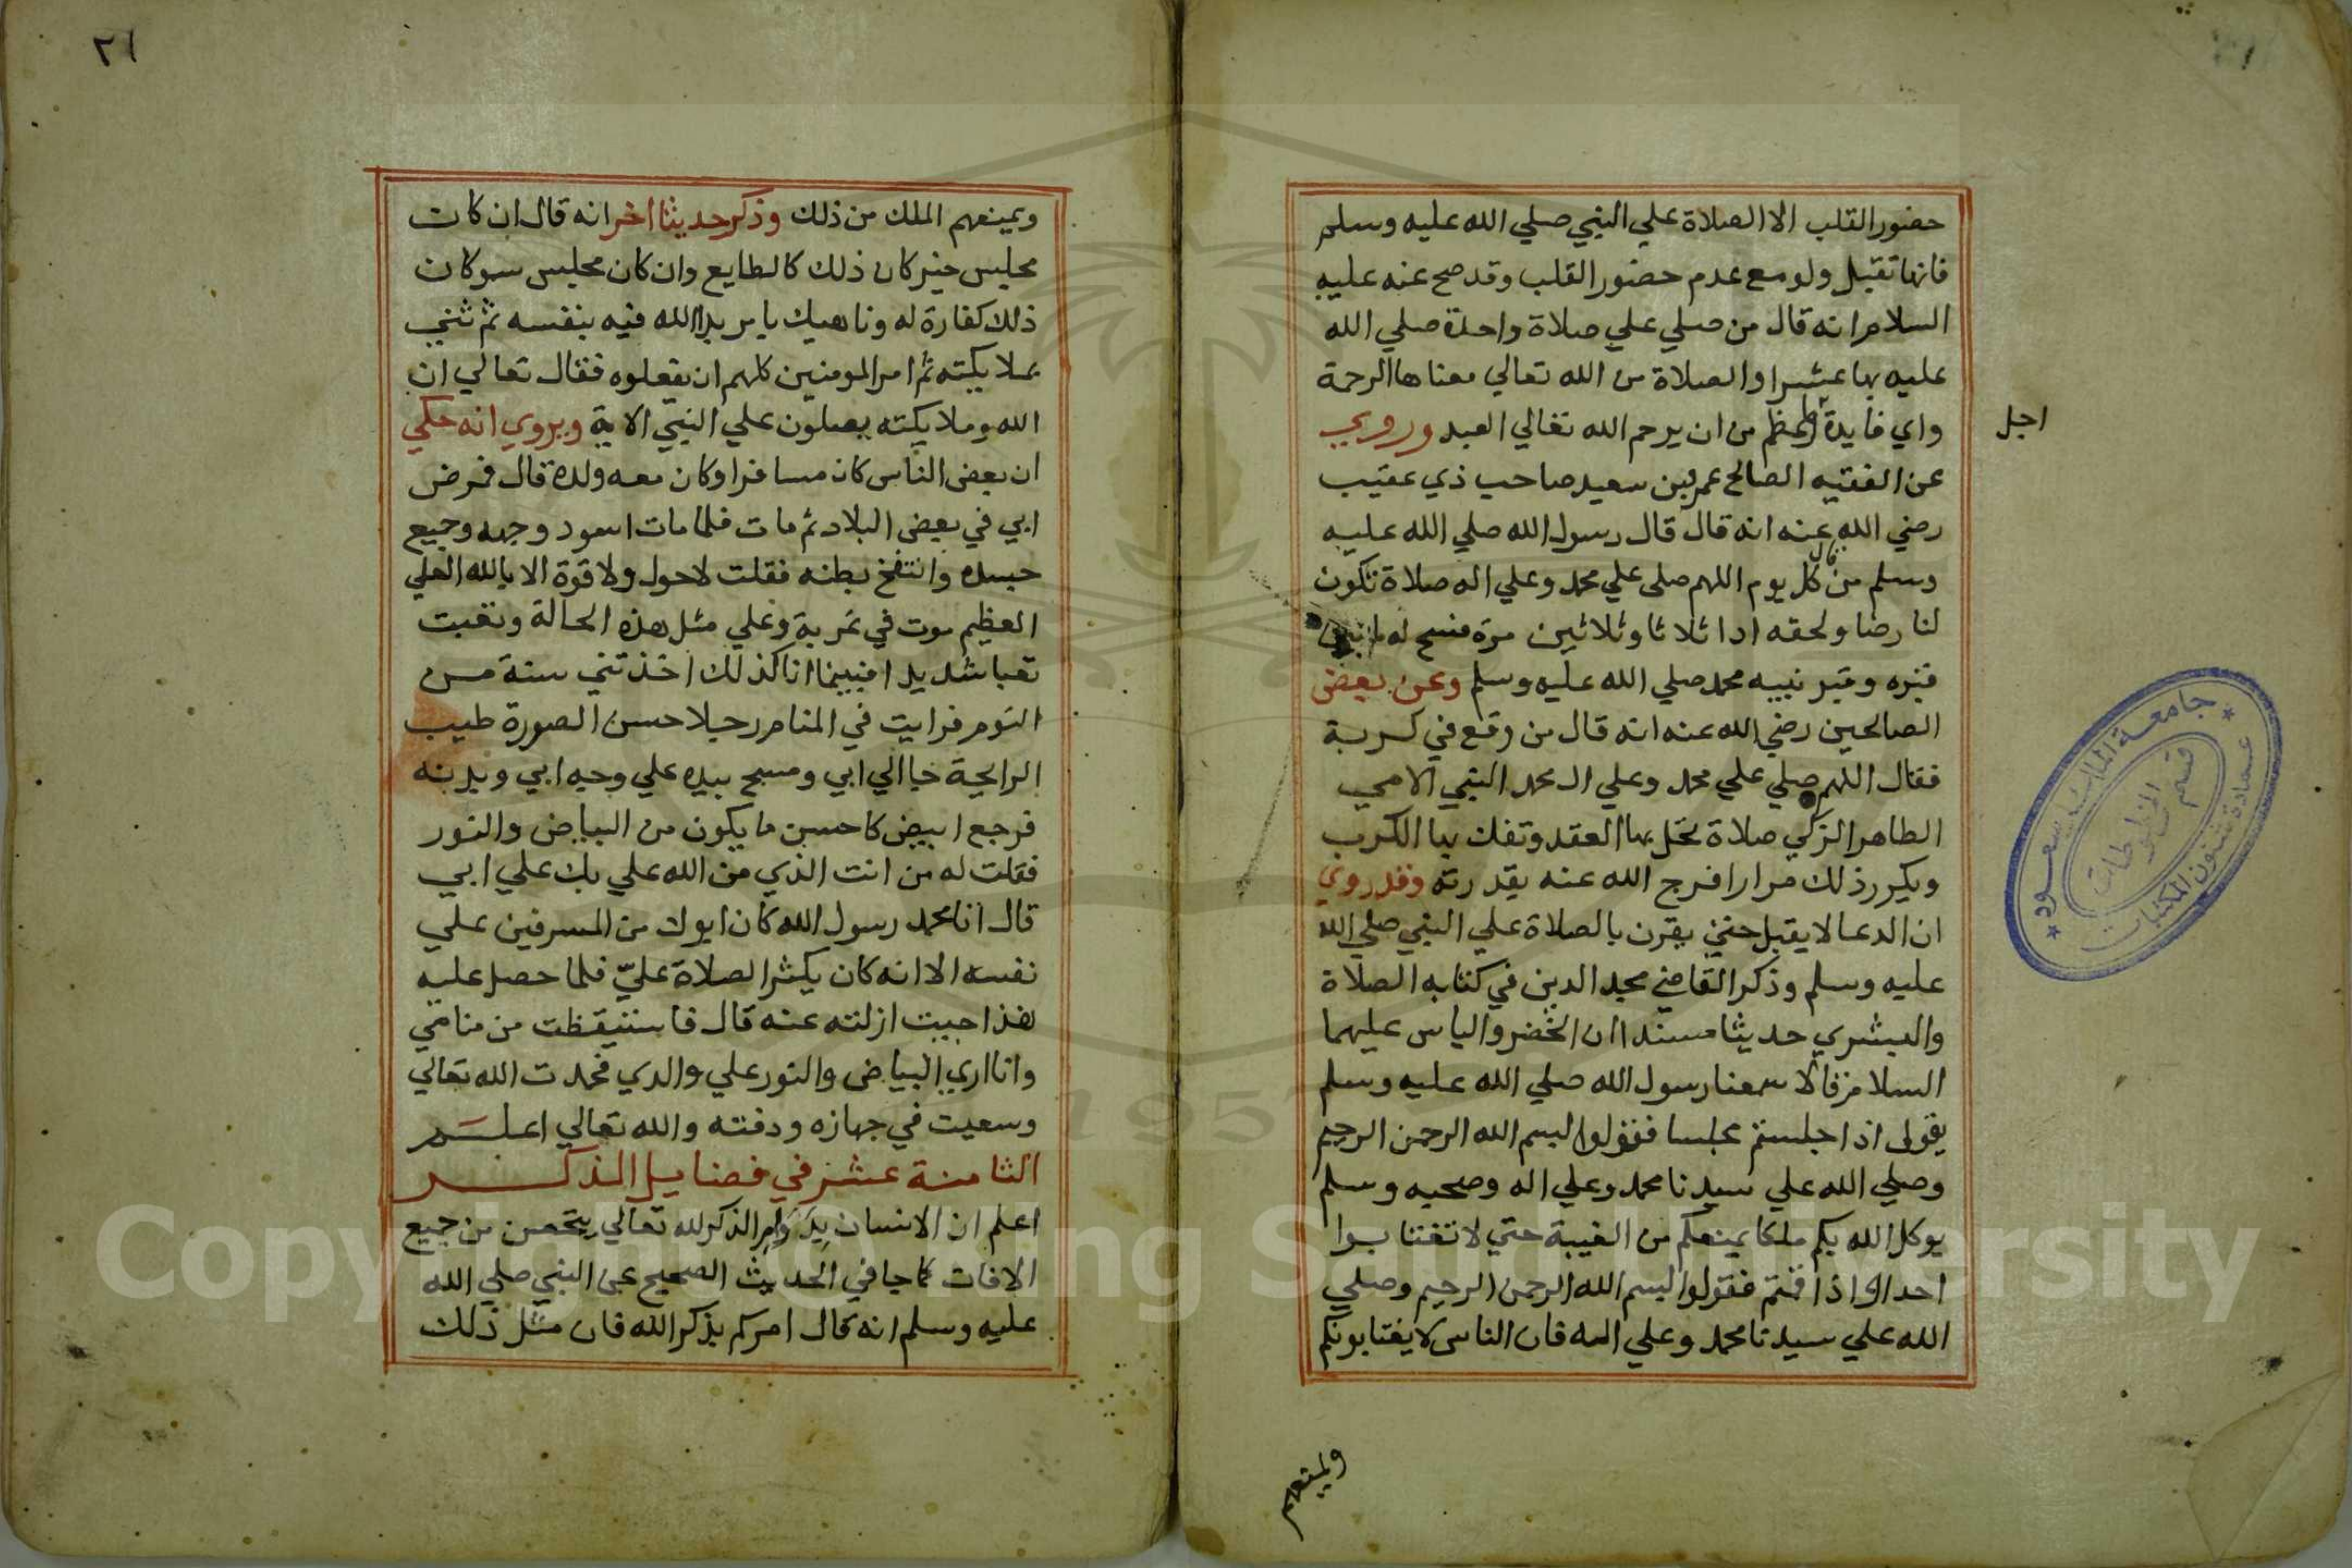 حضور القلب الا الصلاة علي النبي صلي الله عليه وسلم
فانها تقبل ولو مع عدم حضور القلب وقد صح عنه عليه
السلام انه قال من صلي علي صلاة واحدة صلي الله
عليه بها عشرا والصلاة من الله تعالي معناها الرحمة
واي فايدة اعظم من ان يرحم الله تعالي العبد وروي
اجل
عن الفقيه الصالح عمر بن سعيد صاحب ذي عقيب
رضي الله عنه انه قال قال رسول الله صلي الله عليه
وسلم من قال كل يوم اللهم صلى علي محمد وعلي اله صلاة تكون
لنا رضا ولحقه ادا ثلاثا وثلاثين مرة فسح له ما بين
قبره وقبر نبيه محمد صلي الله عليه وسلم وعن بعض
الصالحين رضي الله عنه انه قال من وقع في كربة
فقال اللهم صلي علي محمد وعلي ال محمد النبي الامي
الطاهر الزكي صلاة تحل بها العقد وتفك بها الكرب
ويكرر ذلك مرارا فرج الله عنه بقدرته وقد روي
ان الدعا لا يقبل حتي يقرن بالصلاة علي النبي صلي الله
عليه وسلم وذكر القاضي مجد الدين في كتابه الصلاة
والبشري حديثا مسندا ان الخضر والياس عليهما
السلام قالا سمعنا رسول الله صلي الله عليه وسلم
يقول اذا جلستم مجلسا فقولوا بسم الله الرحمن الرحيم
وصلي الله علي سيدنا محمد وعلي اله وصحبه وسلم
يوكل الله بكم ملكا يمنعكم من الغيبة حتي لا تغتابوا
احدا واذا قمتم فقولوا بسم الله الرحمن الرحيم وصلي
الله علي سيدنا محمد وعلي اله فان الناس لا يغتابونكم
ويمنعهم
جامعة الملك سعود
قسم المخطوطات
عمادة شئون المكتبات
٢١
ويمنعهم الملك من ذلك وذكر حديثا اخر انه قال ان كان
مجلس خير كان ذلك كالطايع وان كان مجلس سو كان
ذلك كفارة له وناهيك بامر بدا الله فيه بنفسه ثم ثني
بملايكته ثم امر المومنين كلهم ان يفعلوه فقال تعالي ان
الله وملايكته يصلون علي النبي الاية ويروي انه حكي
ان بعض الناس كان مسافرا وكان معه ولده قال فمرض
ابي في بعض البلاد ثم مات فلما مات اسود وجهه وجميع
جسده وانتفخ بطنه فقلت لا حول ولا قوة الا بالله العلي
العظيم موت في غربة وعلي مثل هذه الحالة وتعبت
تعبا شديدا فبينما انا كذلك اخذتني سنة من
النوم فرايت في المنام رجلا حسن الصورة طيب
الرايحة جا الي ابي ومسح بيده علي وجه ابي وبدنه
فرجع ابيض كاحسن ما يكون من البياض والنور
فقلت له من انت الذي من الله علي بك علي ابي
قال انا محمد رسول الله كان ابوك من المسرفين علي
نفسه الا انه كان يكثر الصلاة عليّ فلما حصل عليه
هذا جيت ازلته عنه قال فاستيقظت من منامي
وانا اري البياض والنور علي والدي فحمدت الله تعالي
وسعيت في جهازه ودفنته والله تعالي اعلم
الثامنة عشر في فضايل الذكر
اعلم ان الانسان بدوام الذكر لله تعالي يتحصن من جميع
الافات كما جا في الحديث الصحيح عن النبي صلي الله
عليه وسلم انه قال امركم بذكر الله فان مثل ذلك
Copyright © King Saud University
1957